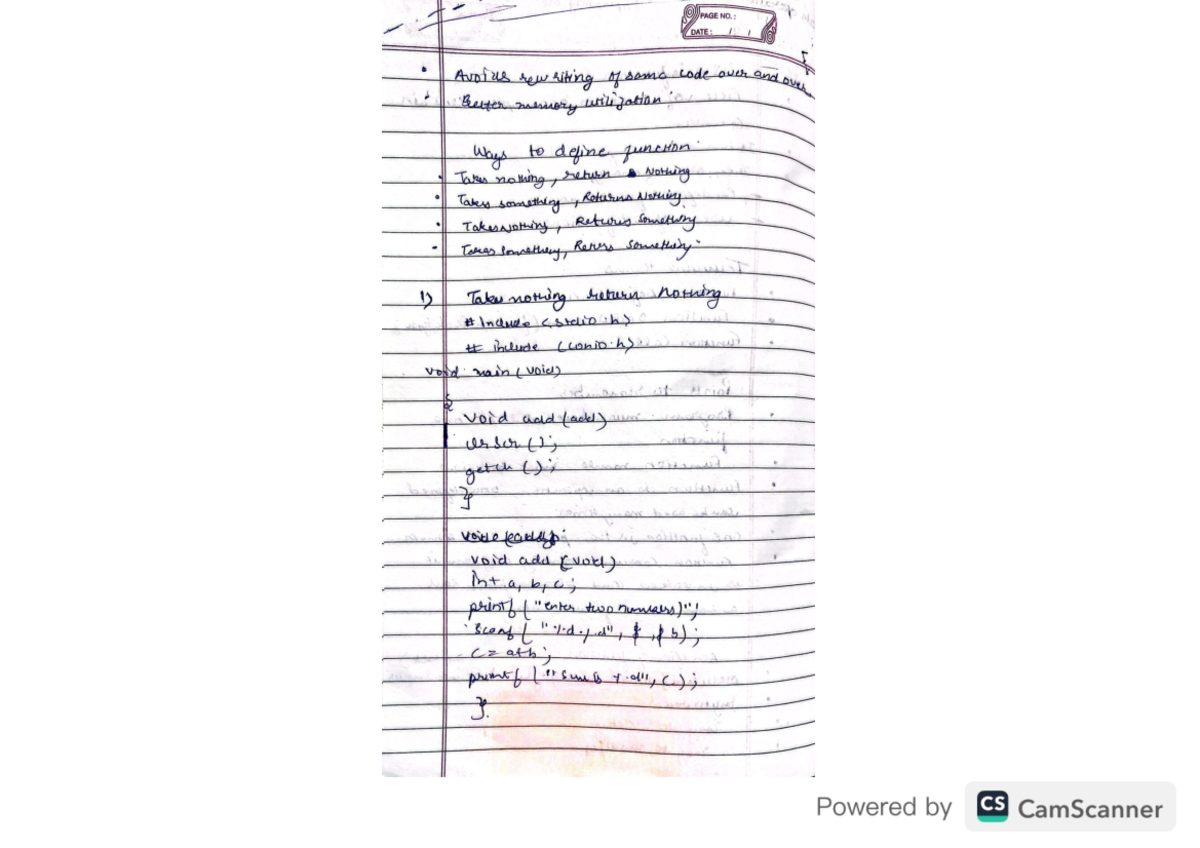 PAGE NO.:
DATE: / /
• Avoids rewriting of same code over and over
• Better memory utilization
Ways to define function
• Takes nothing, return Nothing
• Takes something, Returns Nothing
• Takes Nothing, Returns Something
• Takes Something, Returns Something
1) Take nothing return Nothing
# Include <stdio.h>
# include <conio.h>
void main (void)
{
void add (add)
clrscr ();
getch ();
}
void add (void)
int a, b, c;
printf ("enter two numbers)";
scanf ("%d %d", & , & b);
c = a+b;
printf ("sum %d", c);
}
Powered by CS CamScanner